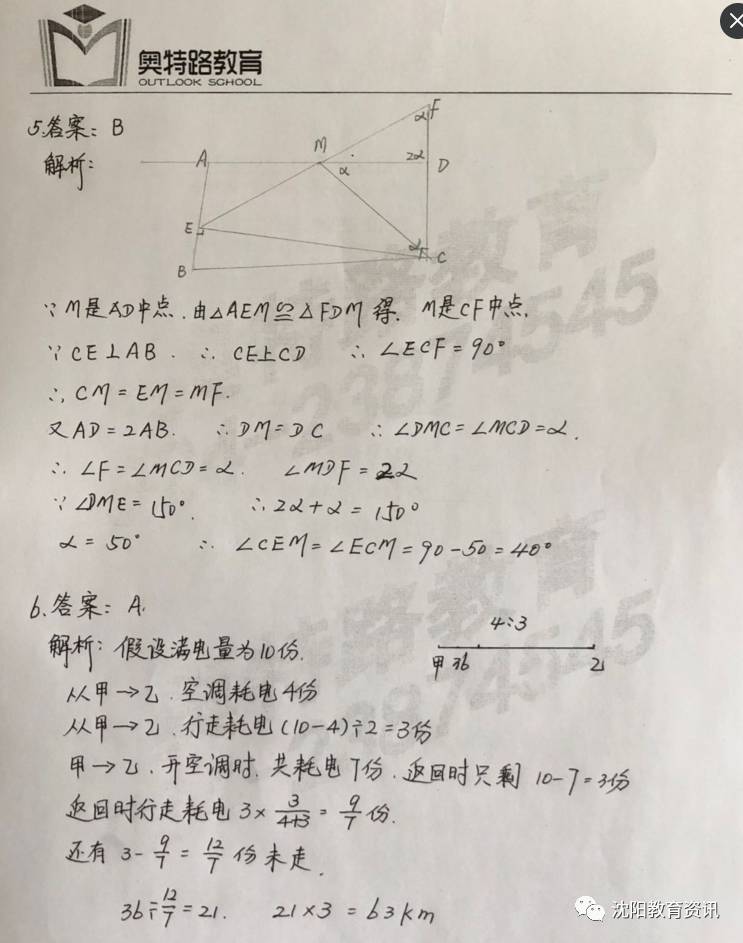 奥特路教育
OUTLOOK SCHOOL
5.答案: B
解析:
A M F α 2α D α E B α C
∵ M是AD中点. 由△AEM≌△FDM 得. M是CF中点.
∵ CE⊥AB. ∴ CE⊥CD ∴ ∠ECF=90°
∴ CM=EM=MF.
又AD=2AB. ∴ DM=DC ∴ ∠DMC=∠MCD=α.
∴ ∠F=∠MCD=α. ∠MDF=2α
∵ ∠DME=150°. ∴ 2α+α=150°
α=50° ∴ ∠CEM=∠ECM=90-50=40°
6.答案: A.
解析: 假设满电量为10份.
4:3
甲 36 乙
从甲→乙. 空调耗电4份
从甲→乙. 行走耗电(10-4)÷2=3份
甲→乙. 开空调时. 共耗电7份. 返回时只剩 10-7=3份
返回时行走耗电 3×3/4+3=9/7份.
还有 3-9/7=12/7份未走.
36÷12/7=21. 21×3=63km
沈阳教育资讯